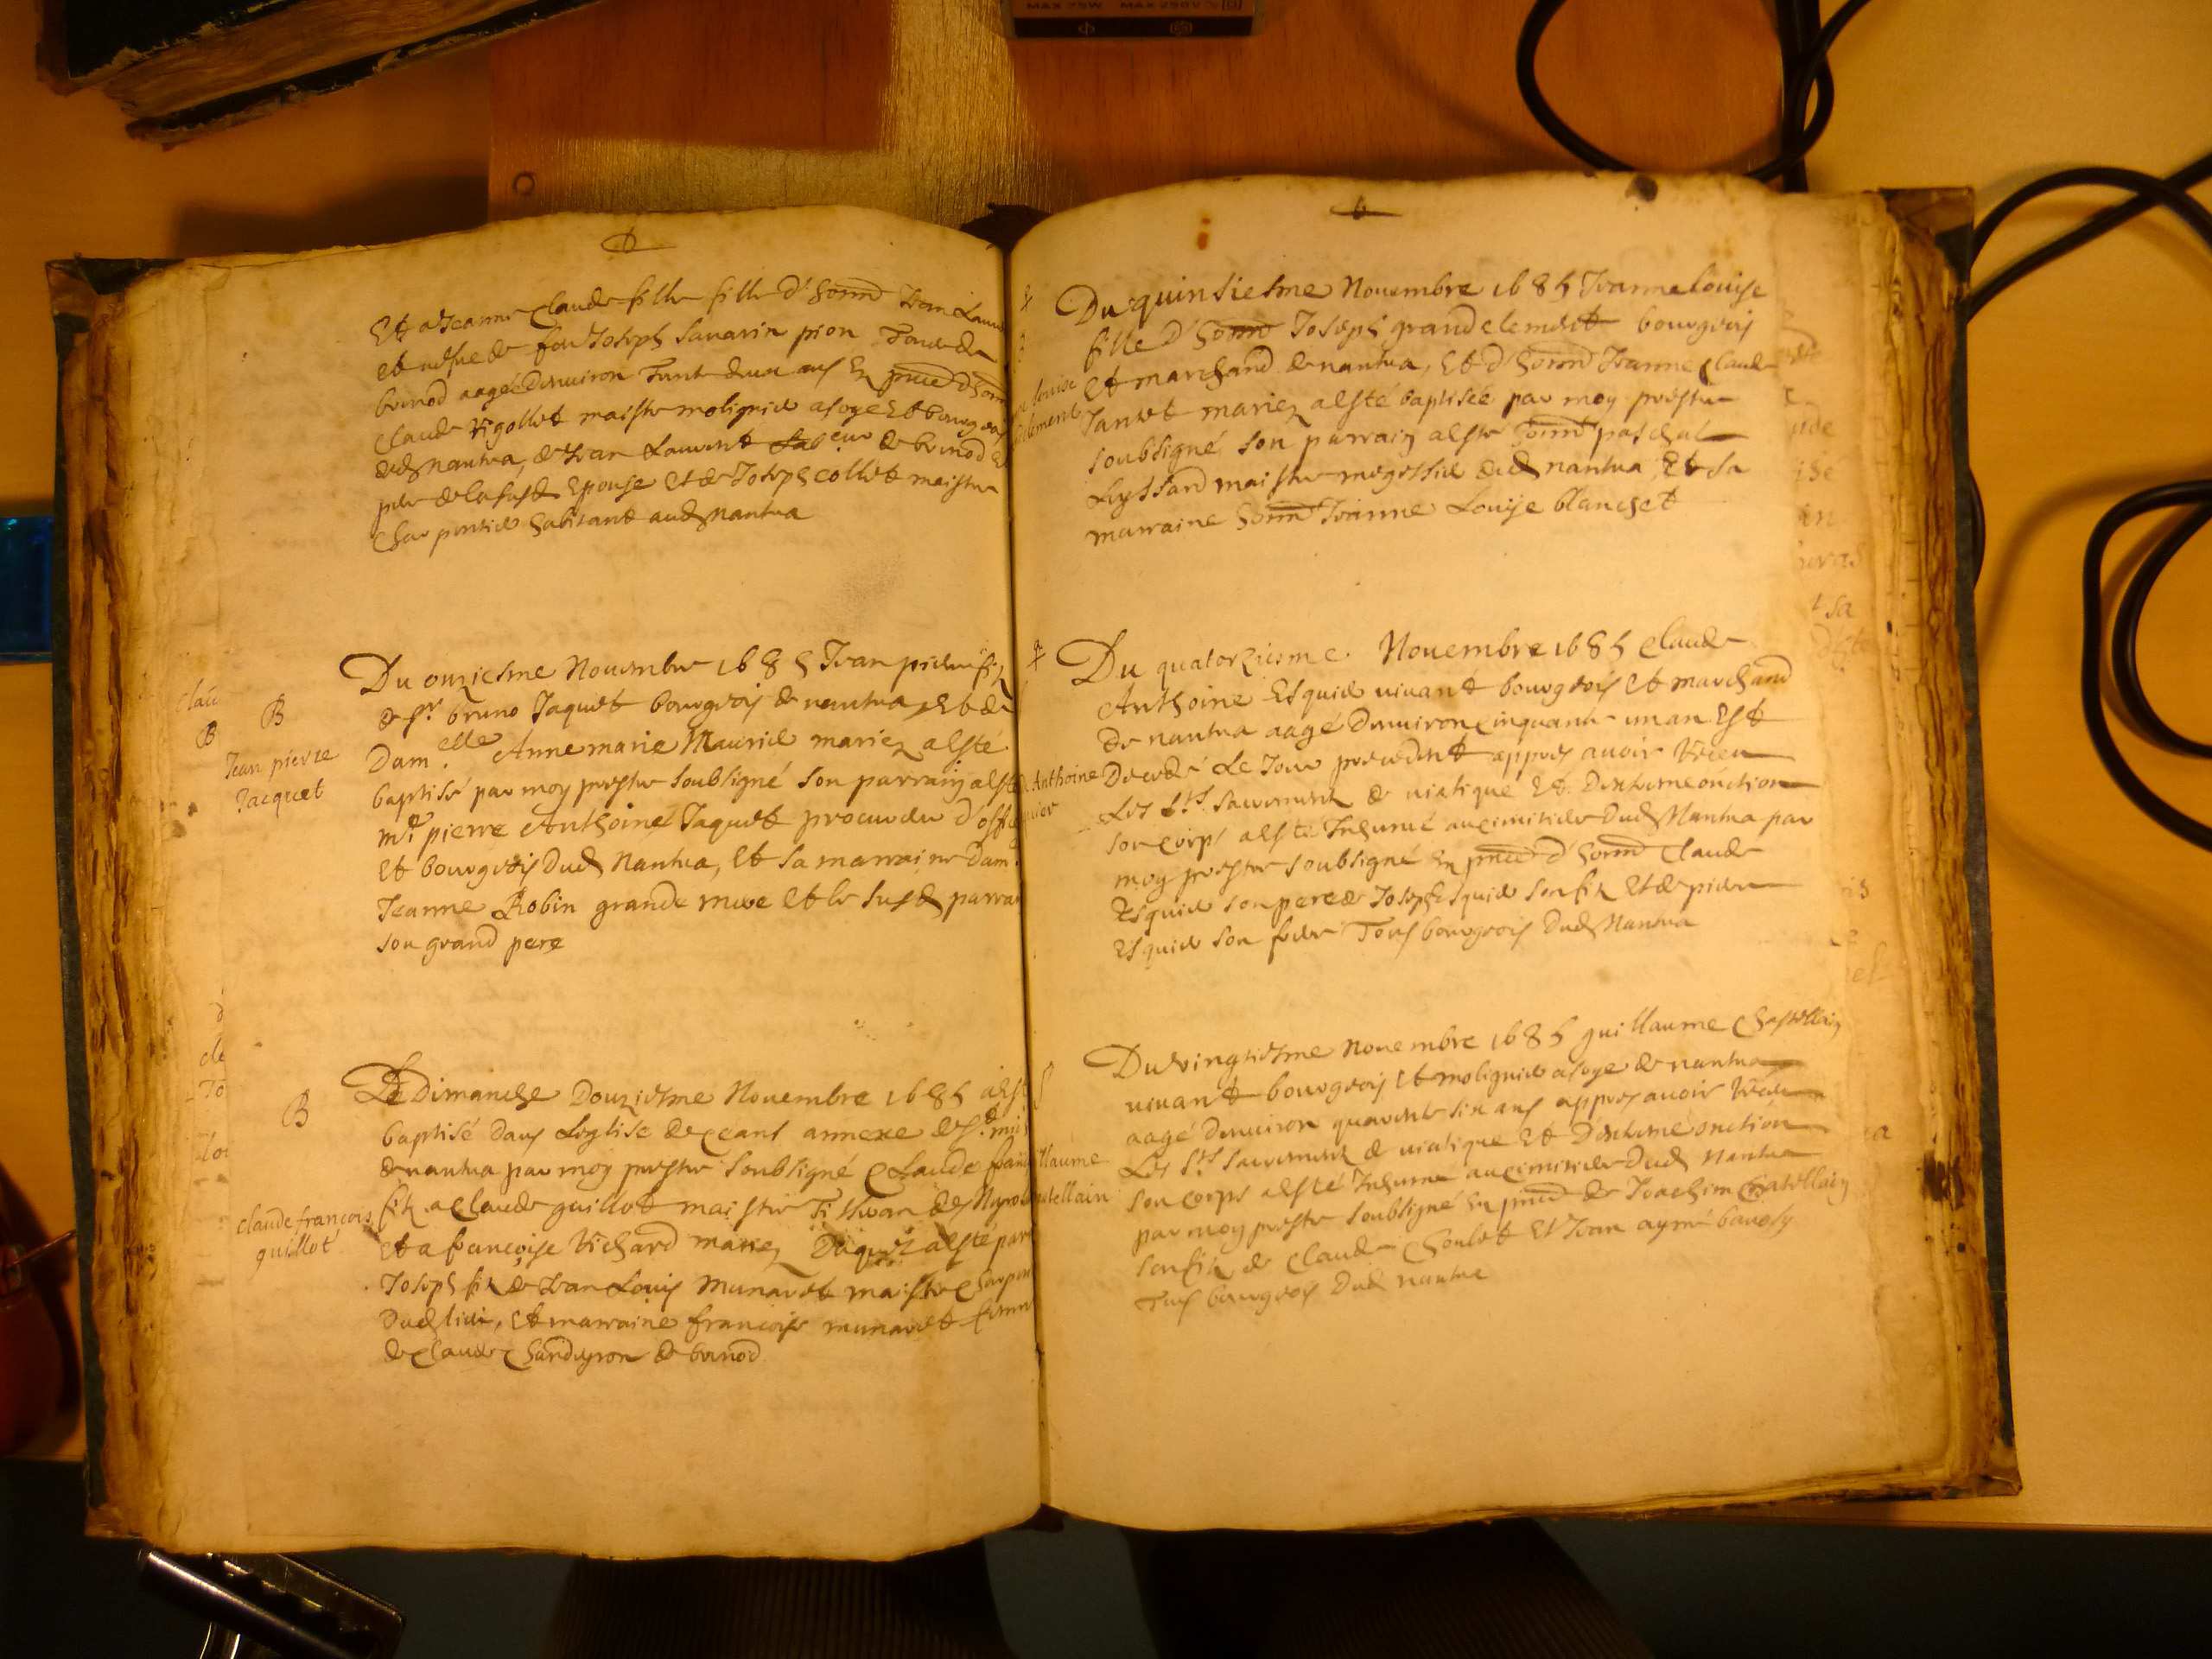 MAX 75W MAX 250V
Et a Jeanne Claude fille fille d'honnd Jean Laure
et vefve de feu Joseph Savarin pion Tous de
brenod aagé denviron Trente deux ans En pnce d'honn
Claude Rigollet maistre molignié a soye Et bourgeois
dud Nantua, de Jean Laurent de brenod
pere de la susd Epouse et de Joseph collet maistre
Charpentier habitant aud Nantua
Du onziesme Novembre 1685 Jean pierre filz
de sr bruno Jaquet bourgeois de nantua, Et de
Damelle Anne marie Mauriel mariez a esté
baptisé par moy prestre soubsigné son parrain a esté
me pierre Anthoine Jaquet procureur d'office
Et bourgeois Dud Nantua, Et sa marraine Dam
Jeanne Robin grande mere Et le susd parrain
son grand pere
B
Jean pierre
Jacquet
Le Dimanche Douziesme Novembre 1685 a esté
baptisé dans Leglise de ceans annexe de St
de nantua par moy prestre soubsigné Claude fran
filz a Claude guillot maistre Tisseran de
Et a francoise Richard mariez Duquel a esté par
Joseph filz de Jean Louis Munaret maistre Charpen
Dud lieu, Et marraine francoise munaret femme
de Claude de brenod
B
claude francois
guillot
Du quinsiesme Novembre 1685 Jeanne louise
fille D'honnd Joseph grandclement bourgeois
et marchand de nantua, Et d'honnd Jeanne Claude
Jantet mariez a esté baptisée par moy prestre
soubsigné son parrain a esté honnd paschal
Lyssard maistre megissié dud nantua, Et sa
marraine honnd Jeanne Louise blanchet
louise
clement
Du quatorziesme Novembre 1685 Claude
Anthoine Esquier vivant bourgeois Et marchand
De nantua aagé denviron cinquante un an Est
Decedé Le Jour precedent appres avoir Receu
Les Sts sacrements de viatique Et Dextreme onction
son corps a esté Inhumé au cimitiere Dud Nantua par
moy prestre soubsigné En pnce d'honnd Claude
Esquier son pere de Joseph Esquier son filz Et de pierre
Esquier son frere Tous bourgeois Dud Nantua
Anthoine
Du vingtiesme Novembre 1685 guillaume Chastellain
vivant bourgeois Et molignié a soye de nantua
aagé denviron quarante six ans appres avoir Receu
Les Sts sacrements de viatique Et Dextreme onction
son corps a esté Inhumé au cimitiere Dud Nantua
par moy prestre soubsigné En pnce de Joachim Chatellain
son filz de Claude Et Jean aymé
Tous bourgeois Dud nantua
llaume
stellain